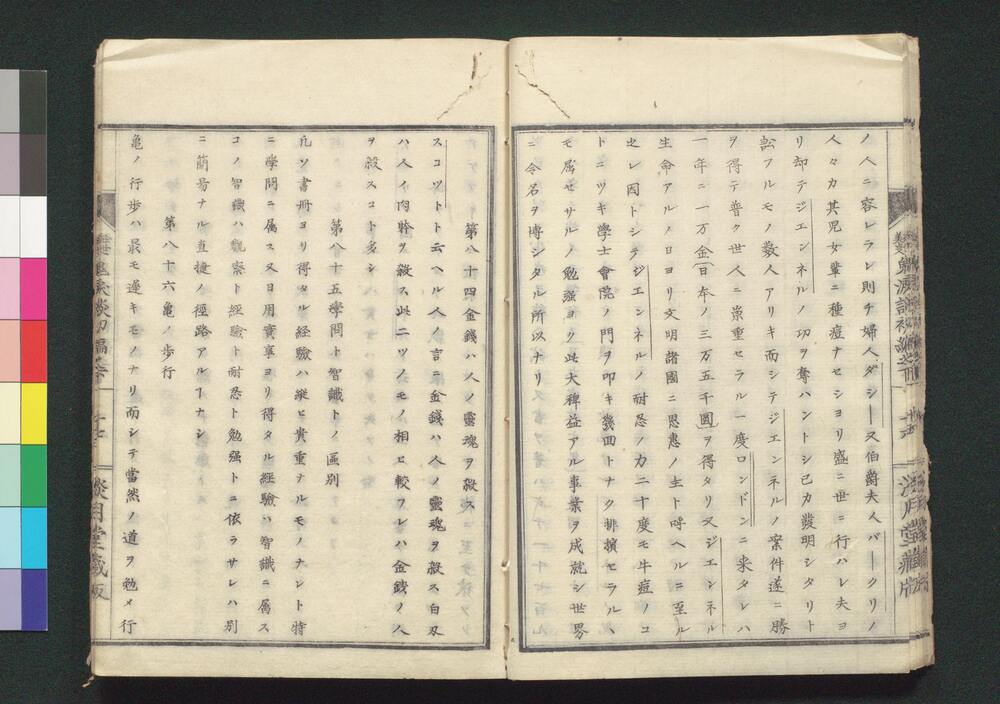 ノ人ニ容レラレ則チ婦人ダシー又伯爵夫人バークリノ
人々カ其児女輩ニ種痘ナセショリ盛ニ世ニ行ハレ夫ヨ
リ却テジエンネルノ功ヲ奪ハントシ己カ發明シタリト
訟フルモノ数人アリキ而シテジエンネルノ案件遂ニ勝
ヲ得テ普ク世人ニ崇重セラル一度ロンドンニ来タレハ
一年ニ一万金(日本ノ三万五千圓)ヲ得タリ又ジエンネル
生命アルノ日ヨリ文明諸國ニ恩惠ノ主ト呼ヘルニ至ル
之レ因トシテジエンネルノ耐忍ノ力二十度モ牛痘ノコ
トニツキ學士會院ノ門ヲ叩キ幾回トナク排擯セラルヽ
モ屈セサルノ勉强ヨク此大裨益アル事業ヲ成就シ世界
ニ令名ヲ博シタル所以ナリ
第八十四金錢ハ人ノ靈魂ヲ殺ス
スコツト云ヘル人ノ言ニ金錢ハ人ノ靈魂ヲ殺ス白刃
ハ人イ肉幹ヲ殺ス此二ツノモノ相ヒ較フレハ金錢ノ人
ヲ殺スコト多シ
第八十五學問ト智識トノ區别
凡ソ書冊ヨリ得タル経驗ハ縦ヒ貴重ナルモノナレト特
ニ學問ニ属ス又日用實事ヨリ得タル經驗ハ智識ニ属ス
コノ智識ハ觀察ト經驗ト耐忍ト勉强トニ依ラサレハ别
ニ蕳昜ナル直捷ノ徑路アルヿナシ
第八十六亀ノ歩行
亀ノ行歩ハ最モ遅キモノナリ而シテ當然ノ道ヲ勉メ行
淡月堂藏版